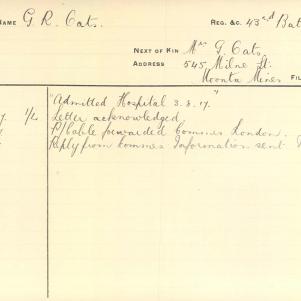 NAME G. R. Cats. REG. &C. 43rd Bat
NEXT OF KIN Mrs G. Cats.
ADDRESS 545 Milne St.
Moonta Mines FIL
"Admitted Hospital 3.8.17."
1/2 Letter acknowledged
P/Cable forwarded Commes London.
Reply from Commes Information sent